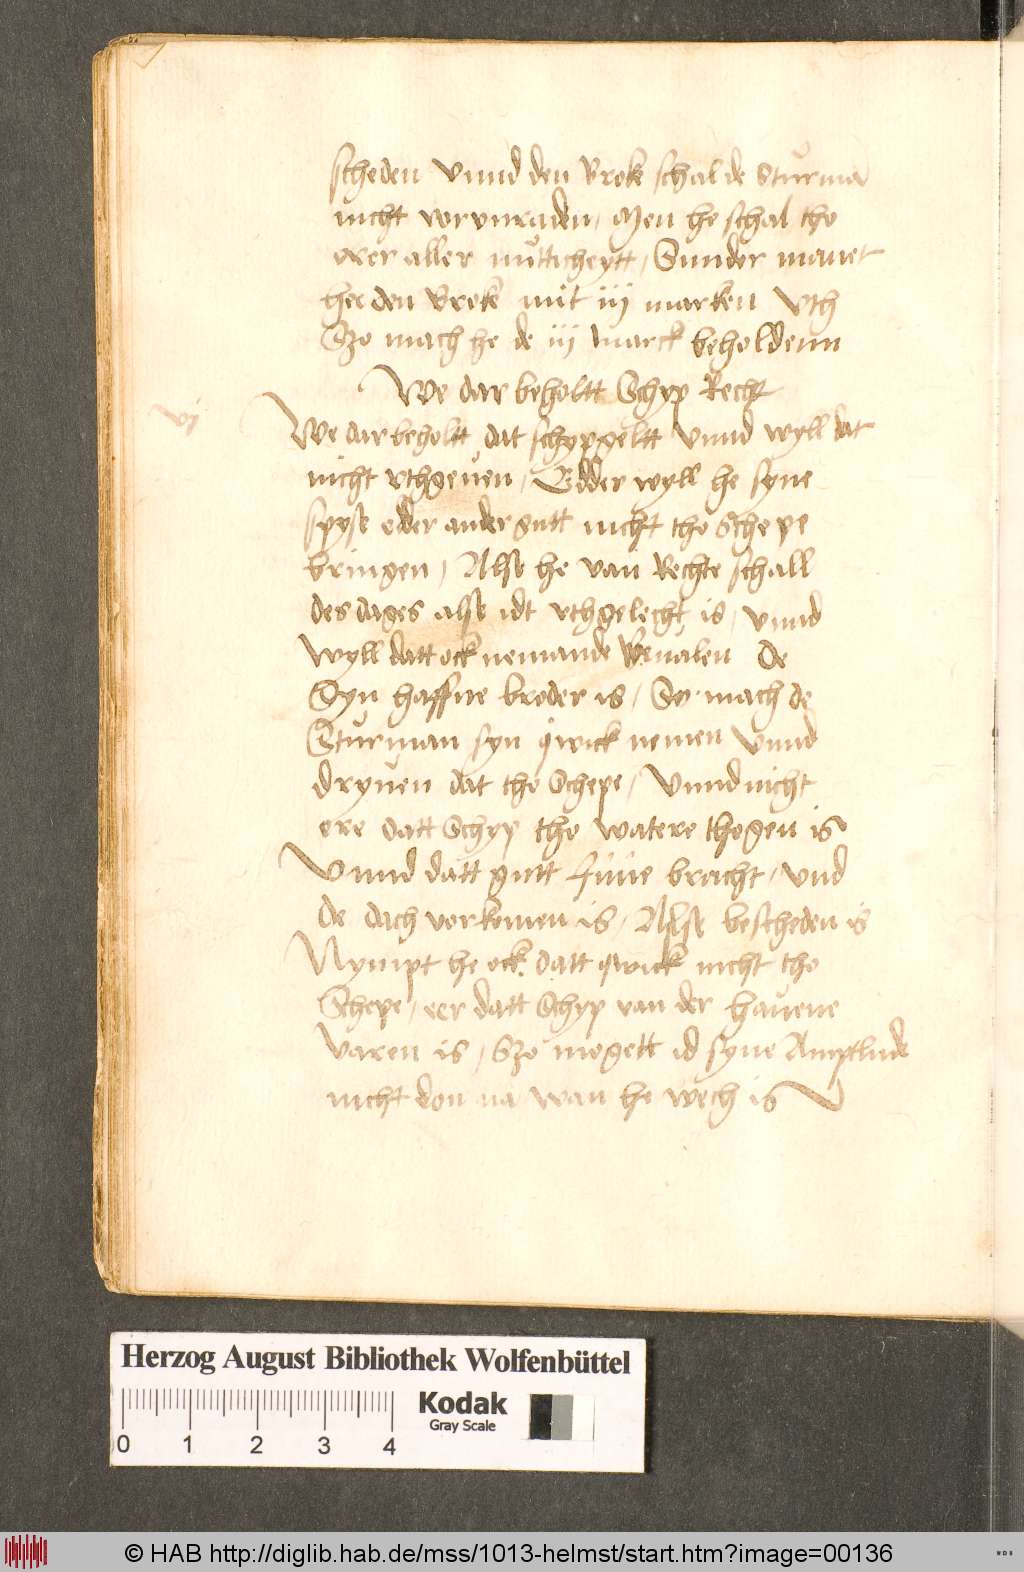 scheden Vnnd den Broke schal de Stůrmā
nicht vorvnraden, Men he schal tho
orer aller nůtticheytt, Sunder manet
hee den Broke mit iij marken vth
Szo mach he de iij marck beholdenn
We dar beholtt Schyp Recht
vj
We dar beholtt dat schypgeltt Vnnd wyll dat
nicht vthgeůen, Edder wyll he syne
spyse edder ander gutt nicht tho Schepe
bringen, Alse he van Rechte schall
des dages alse idt vthgelecht is, vnnd
wyll datt ock nemande Beualen De
Syn haffne broder is, So mach de
Stůrman syn qwick nemen Vnnd
dryůen dat tho Schepe, Vnnd nicht
ere datt Schyp tho watere thogen is
Vnnd datt gutt Inne bracht, vnd
de dach vorkomen is, Alse bescheden is
Nympt he ock datt qwick nicht tho
Schepe, eer datt Schyp van der haůene
varen is, Szo mogett id syne Amptlude
nicht don na wan he wech is
Herzog August Bibliothek Wolfenbüttel
Kodak
Gray Scale
0 1 2 3 4
© HAB http://diglib.hab.de/mss/1013-helmst/start.htm?image=00136